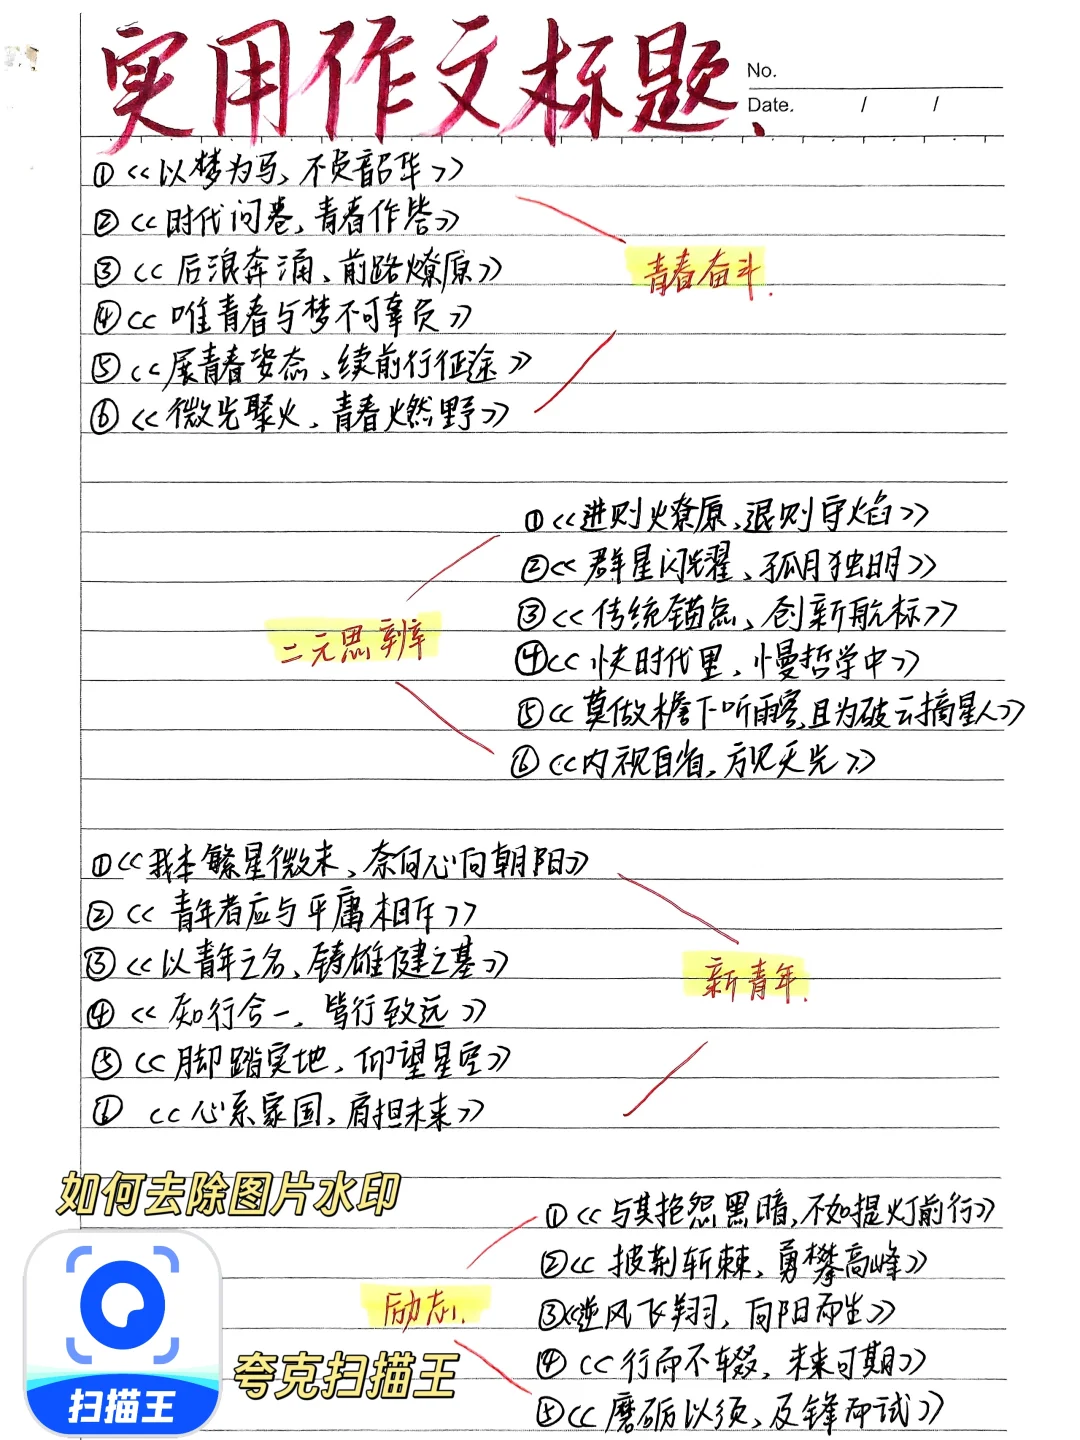 实用作文标题
No.
Date. / /
①《以梦为马、不负韶华》
②《时代问卷,青春作答》
③《后浪奔涌,前路燎原》
青春奋斗.
④《唯青春与梦不可辜负》
⑤《展青春姿态、续前行征途》
⑥《微光聚火,青春燃野》
①《进则火燎原、退则守焰》
②《群星闪耀、孤月独明》
③《传统锚点,创新航标》
二元思辨
④《快时代里,慢哲学中》
⑤《莫做檐下听雨客,且为破云摘星人》
⑥《内视自省,方见天光》
①《我本繁星微末、奈何心向朝阳》
②《青年者应与平庸相斥》
③《以青年之名,铸雄健之基》
新青年.
④《知行合一,笃行致远》
⑤《脚踏实地,仰望星空》
⑥《心系家国,肩担未来》
如何去除图片水印
①《与其抱怨黑暗,不如提灯前行》
②《披荆斩棘,勇攀高峰》
励志.
③《逆风飞翔,向阳而生》
夸克扫描王
④《行而不辍,未来可期》
扫描王
⑤《磨砺以须,及锋而试》